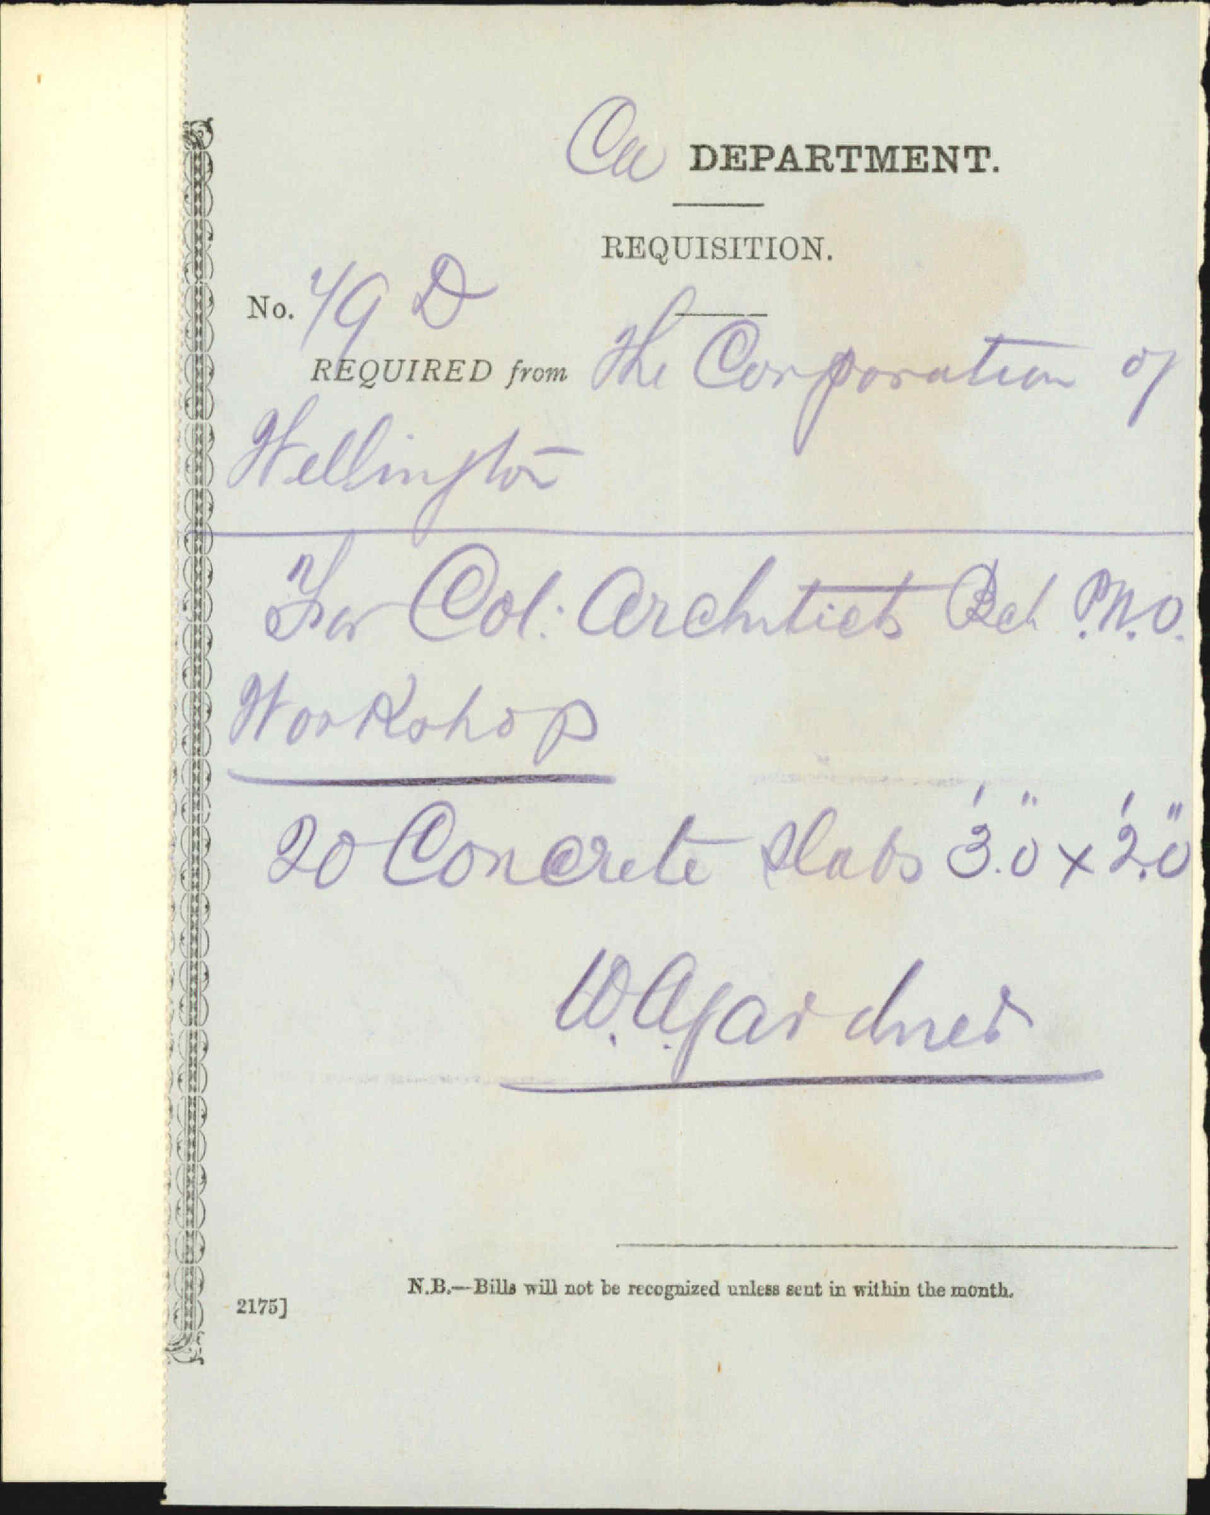 Ca DEPARTMENT.
REQUISITION.
No. 49 D
REQUIRED from The Corporation of
Wellington
For Col: Architects Bch P.W.D.
Workshop
20 Concrete Slabs 3'.0" x 2'.0"
W.A. Gardner
N.B.—Bills will not be recognized unless sent in within the month.
2175]